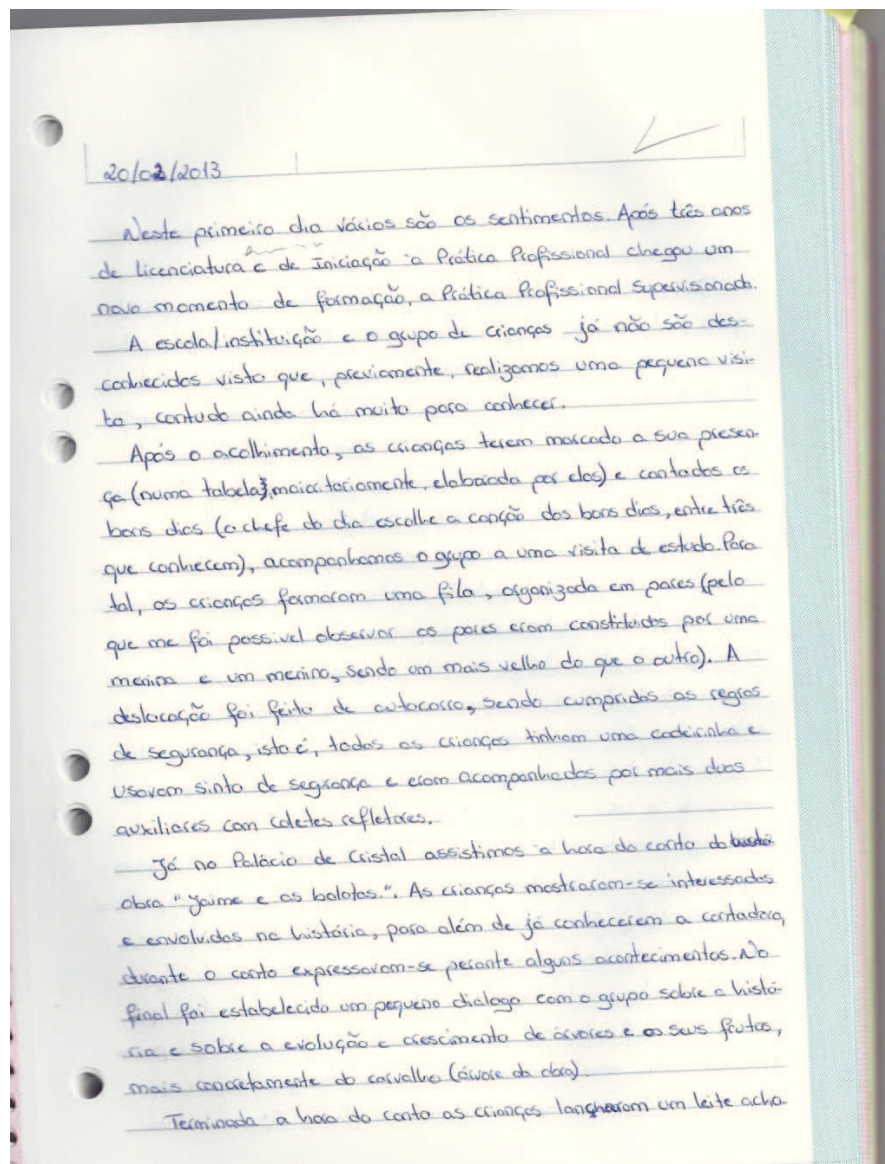 20/02/2013
Neste primeiro dia vários são os sentimentos. Após três anos
de Licenciatura e de Iniciação à Prática Profissional chegou um
novo momento de formação, a Prática Profissional Supervisionada.
A escola/instituição e o grupo de crianças já não são des-
conhecidos visto que, previamente, realizamos uma pequena visi-
ta, contudo ainda há muito para conhecer.
Após o acolhimento, as crianças terem marcado a sua presen-
ça (numa tabela, maioritariamente, elaborada por elas) e cantados os
bons dias (o chefe do dia escolhe a canção dos bons dias, entre três
que conhecem), acompanhamos o grupo a uma visita de estudo. Para
tal, as crianças formaram uma fila, organizada em pares (pelo
que me foi possivel observar os pares eram constituidos por uma
menina e um menino, sendo um mais velho do que o outro). A
deslocação foi feita de autocarro, sendo cumpridas as regras
de segurança, isto é, todas as crianças tinham uma cadeirinha e
usavam sinto de segrança e eram acompanhadas por mais duas
auxiliares com coletes refletores.
Já no Palácio de Cristal assistimos à hora do conto da
obra "Jaime e as bolotas.". As crianças mostraram-se interessadas
e envolvidas na história, para além de já conhecerem a contadora,
durante o conto expressavam-se perante alguns acontecimentos. No
final foi estabelecido um pequeno diálogo com o grupo sobre a histó-
ria e sobre a evolução e crescimento de árvores e os seus frutos,
mais concretamente do carvalho (árvore da obra).
Terminada a hora do conto as crianças lancharam um leite acho-